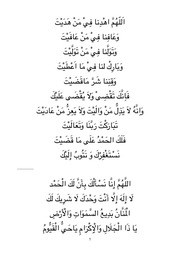 اَللَّهُمَّ اهْدِنَا فِيْ مَنْ هَدَيْتَ
وَعَافِنَا فِيْ مَنْ عَافَيْتَ
وَتَوَلَّنَا فِيْ مَنْ تَوَلَّيْتَ
وَبَارِكْ لَنَا فِيْ مَا اَعْطَيْتَ
وَقِنَا شَرَّ مَاقَضَيْتَ
فَاِنَّكَ تَقْضِىْ وَلاَ يُقْضَى عَلَيْكَ
وَاِنَّهُ لاَ يَذِلُّ مَنْ وَّالَيْتَ وَلاَ يَعِزُّ مَنْ عَادَيْتَ
تَبَارَكْتَ رَبَّنَا وَتَعَالَيْتَ
فَلَكَ الْحَمْدُ عَلَى مَا قَضَيْتَ
نَسْتَغْفِرُكَ وَ نَتُوْبُ اِلَيْكَ
اَللَّهُمَّ اِنَّا نَسْاَلُكَ بِاَنَّ لَكَ الْحَمْدَ
لاَ اِلَهَ اِلَّا اَنْتَ وَحْدَكَ لاَ شَرِيْكَ لَكَ
الْمَنَّانُ بَدِيْعُ السَّمَوَاتِ وَالْاَرْضِ
يَا ذَا الْجَلَالِ وَالْاِكْرَامِ يَاحَيُّ الْقَيُّوْمُ